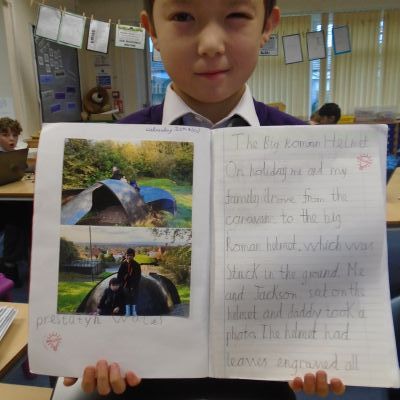 prestatyn wales
The Big Roman Helmet
On holiday me and my
family drove from the
caravan to the big
Roman helmet. which was
stuck in the ground. Me
and Jackson sat on the
helmet and daddy took a
photo. The helmet had
leaves engraved all